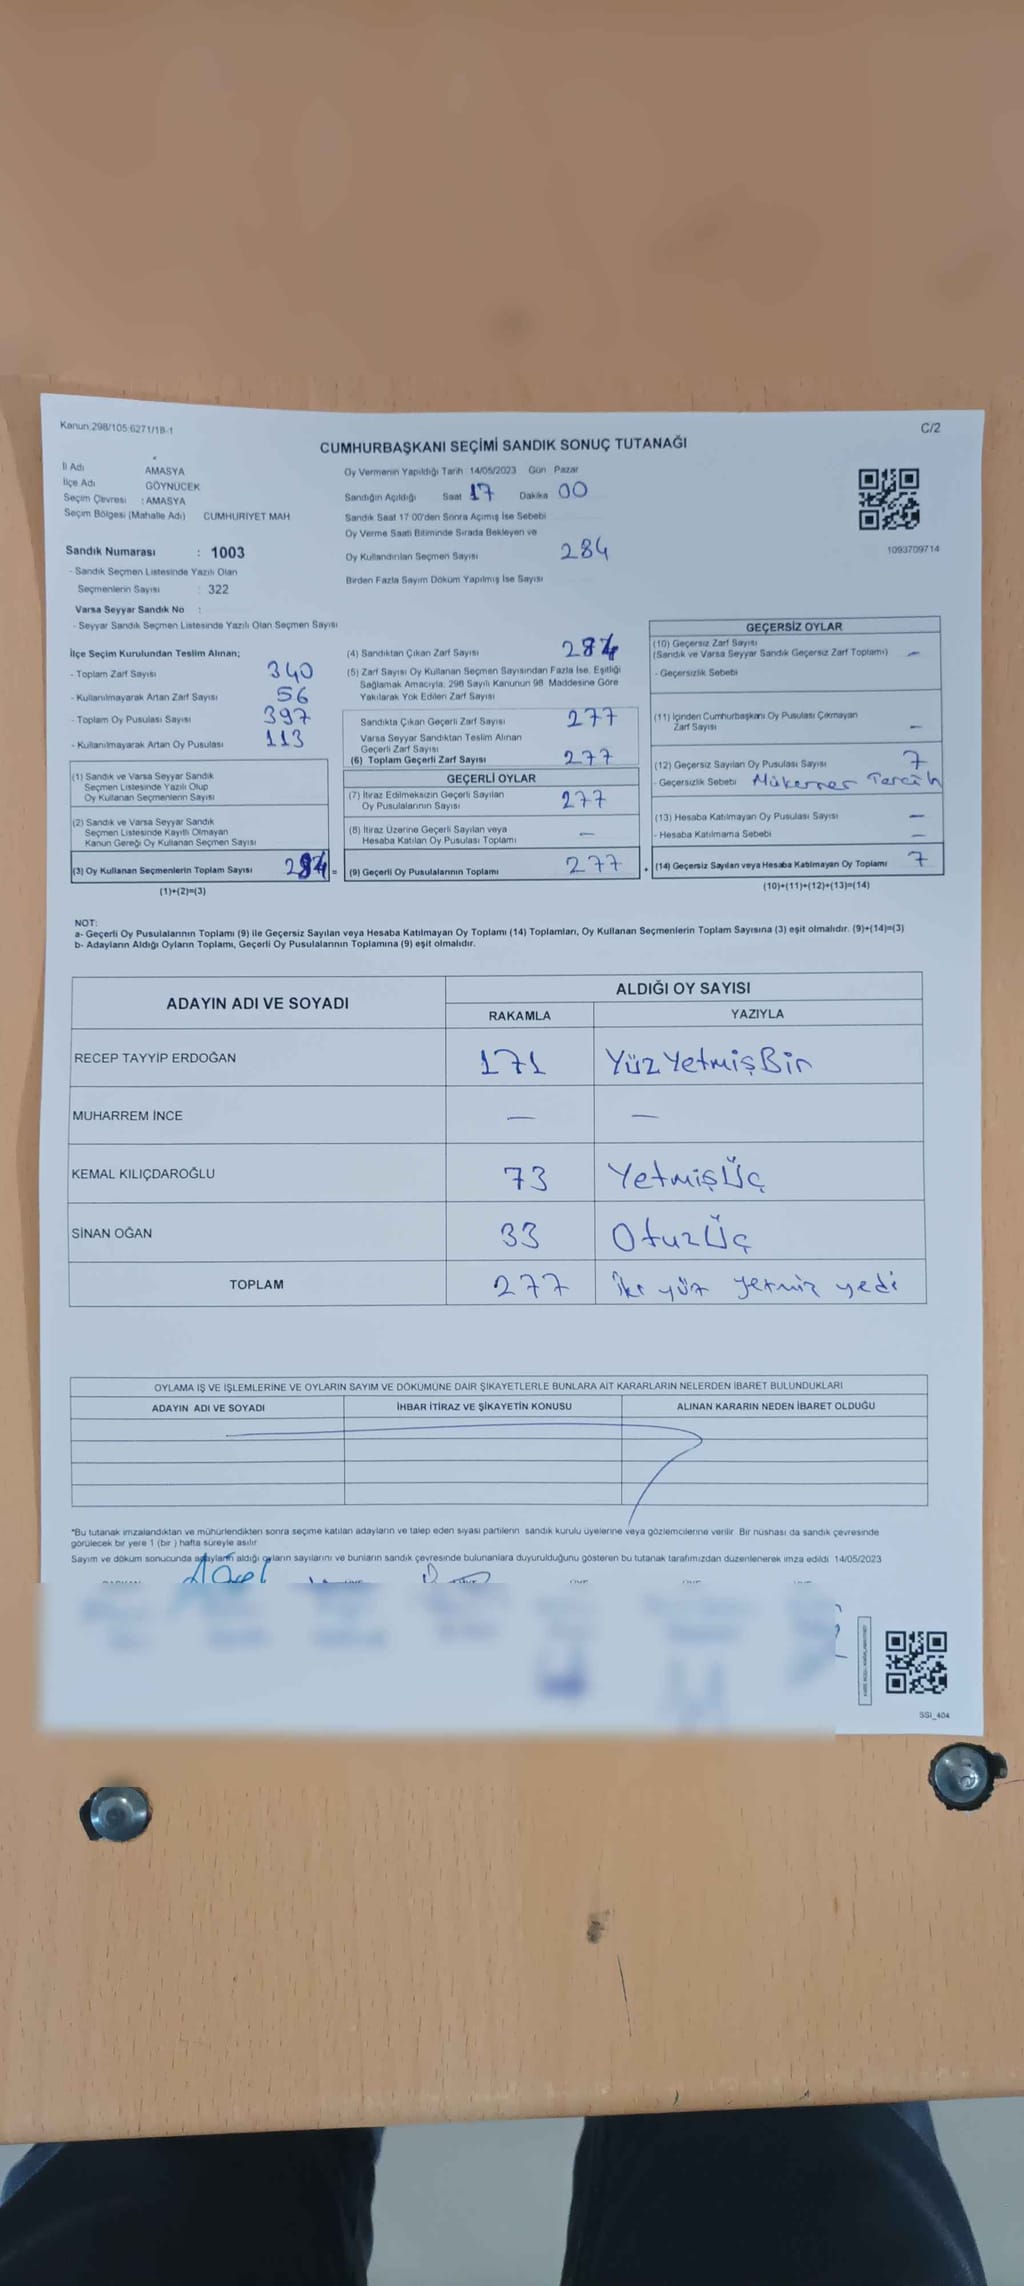 Kanun:298/105.6271/18-1
C/2
CUMHURBAŞKANI SEÇİMİ SANDIK SONUÇ TUTANAĞI
İl Adı AMASYA
İlçe Adı GÖYNÜCEK
Seçim Çevresi : AMASYA
Seçim Bölgesi (Mahalle Adı) CUMHURİYET MAH
Sandık Numarası : 1003
- Sandık Seçmen Listesinde Yazılı Olan
Seçmenlerin Sayısı : 322
Varsa Seyyar Sandık No :
- Seyyar Sandık Seçmen Listesinde Yazılı Olan Seçmen Sayısı
Oy Vermenin Yapıldığı Tarih 14/05/2023 Gün Pazar
Sandığın Açıldığı Saat 17 Dakika 00
Sandık Saat 17 00'den Sonra Açımış İse Sebebi
Oy Verme Saati Bitiminde Sırada Bekleyen ve
Oy Kullandırılan Seçmen Sayısı 284
Birden Fazla Sayım Döküm Yapılmış İse Sayısı
1093709714
İlçe Seçim Kurulundan Teslim Alınan;
- Toplam Zarf Sayısı 340
- Kullanılmayarak Artan Zarf Sayısı 56
- Toplam Oy Pusulası Sayısı 397
- Kullanılmayarak Artan Oy Pusulası 113
(1) Sandık ve Varsa Seyyar Sandık
Seçmen Listesinde Yazılı Olup
Oy Kullanan Seçmenlerin Sayısı
(2) Sandık ve Varsa Seyyar Sandık
Seçmen Listesinde Kayıtlı Olmayan
Kanun Gereği Oy Kullanan Seçmen Sayısı
(3) Oy Kullanan Seçmenlerin Toplam Sayısı 284 =
(1)+(2)=(3)
(4) Sandıktan Çıkan Zarf Sayısı 284
(5) Zarf Sayısı Oy Kullanan Seçmen Sayısından Fazla İse, Eşitliği
Sağlamak Amacıyla; 298 Sayılı Kanunun 98. Maddesine Göre
Yakılarak Yok Edilen Zarf Sayısı
Sandıkta Çıkan Geçerli Zarf Sayısı 277
Varsa Seyyar Sandıktan Teslim Alınan
Geçerli Zarf Sayısı
(6) Toplam Geçerli Zarf Sayısı 277
GEÇERLİ OYLAR
(7) İtiraz Edilmeksizin Geçerli Sayılan
Oy Pusulalarının Sayısı 277
(8) İtiraz Üzerine Geçerli Sayılan veya
Hesaba Katılan Oy Pusulası Toplamı —
(9) Geçerli Oy Pusulalarının Toplamı 277
GEÇERSİZ OYLAR
(10) Geçersiz Zarf Sayısı
(Sandık ve Varsa Seyyar Sandık Geçersiz Zarf Toplamı) —
- Geçersizlik Sebebi
(11) İçinden Cumhurbaşkanı Oy Pusulası Çıkmayan
Zarf Sayısı —
(12) Geçersiz Sayılan Oy Pusulası Sayısı 7
- Geçersizlik Sebebi Mükerrer Tercih
(13) Hesaba Katılmayan Oy Pusulası Sayısı —
- Hesaba Katılmama Sebebi —
(14) Geçersiz Sayılan veya Hesaba Katılmayan Oy Toplamı 7
(10)+(11)+(12)+(13)=(14)
NOT:
a- Geçerli Oy Pusulalarının Toplamı (9) ile Geçersiz Sayılan veya Hesaba Katılmayan Oy Toplamı (14) Toplamları, Oy Kullanan Seçmenlerin Toplam Sayısına (3) eşit olmalıdır. (9)+(14)=(3)
b- Adayların Aldığı Oyların Toplamı, Geçerli Oy Pusulalarının Toplamına (9) eşit olmalıdır.
ADAYIN ADI VE SOYADI ALDIĞI OY SAYISI
RAKAMLA YAZIYLA
RECEP TAYYİP ERDOĞAN 171 YüzYetmişBir
MUHARREM İNCE — —
KEMAL KILIÇDAROĞLU 73 YetmişÜç
SİNAN OĞAN 33 OtuzÜç
TOPLAM 277 iki yüz yetmiz yedi
OYLAMA İŞ VE İŞLEMLERİNE VE OYLARIN SAYIM VE DÖKÜMÜNE DAİR ŞİKAYETLERLE BUNLARA AİT KARARLARIN NELERDEN İBARET BULUNDUKLARI
ADAYIN ADI VE SOYADI İHBAR İTİRAZ VE ŞİKAYETİN KONUSU ALINAN KARARIN NEDEN İBARET OLDUĞU
*Bu tutanak imzalandıktan ve mühürlendikten sonra seçime katılan adayların ve talep eden siyasi partilerin sandık kurulu üyelerine veya gözlemcilerine verilir. Bir nüshası da sandık çevresinde
görülecek bir yere 1 (bir ) hafta süreyle asılır.
Sayım ve döküm sonucunda adayların aldığı oyların sayılarını ve bunların sandık çevresinde bulunanlara duyurulduğunu gösteren bu tutanak tarafımızdan düzenlenerek imza edildi 14/05/2023
SSI_404